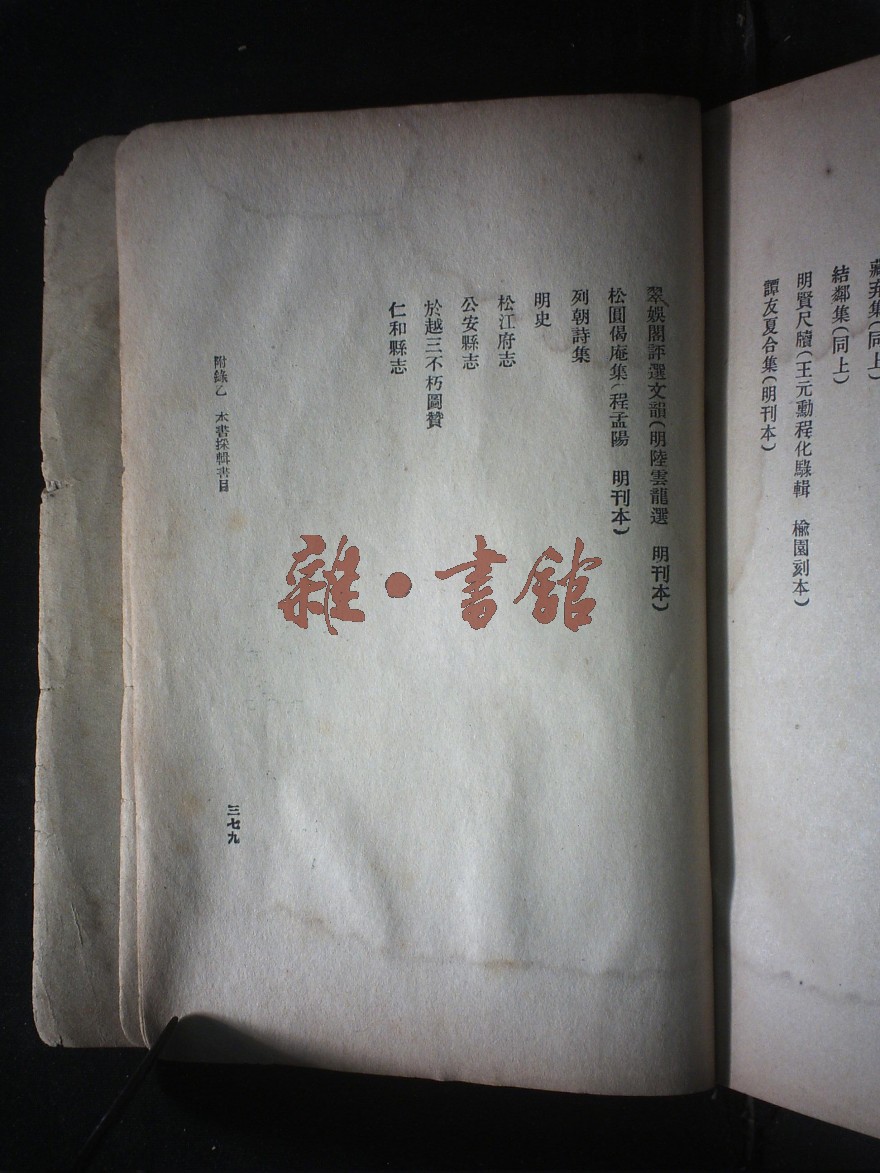 結鄰集(同上)
明賢尺牘(王元勳程化騄輯 楡園刻本)
譚友夏合集(明刊本)
翠娛閣評選文韻(明陸雲龍選 明刊本)
松圓偈庵集(程孟陽 明刊本)
列朝詩集
明史
松江府志
公安縣志
於越三不朽圖贊
仁和縣志
附錄乙 本書採輯書目
三七九
雜·書館